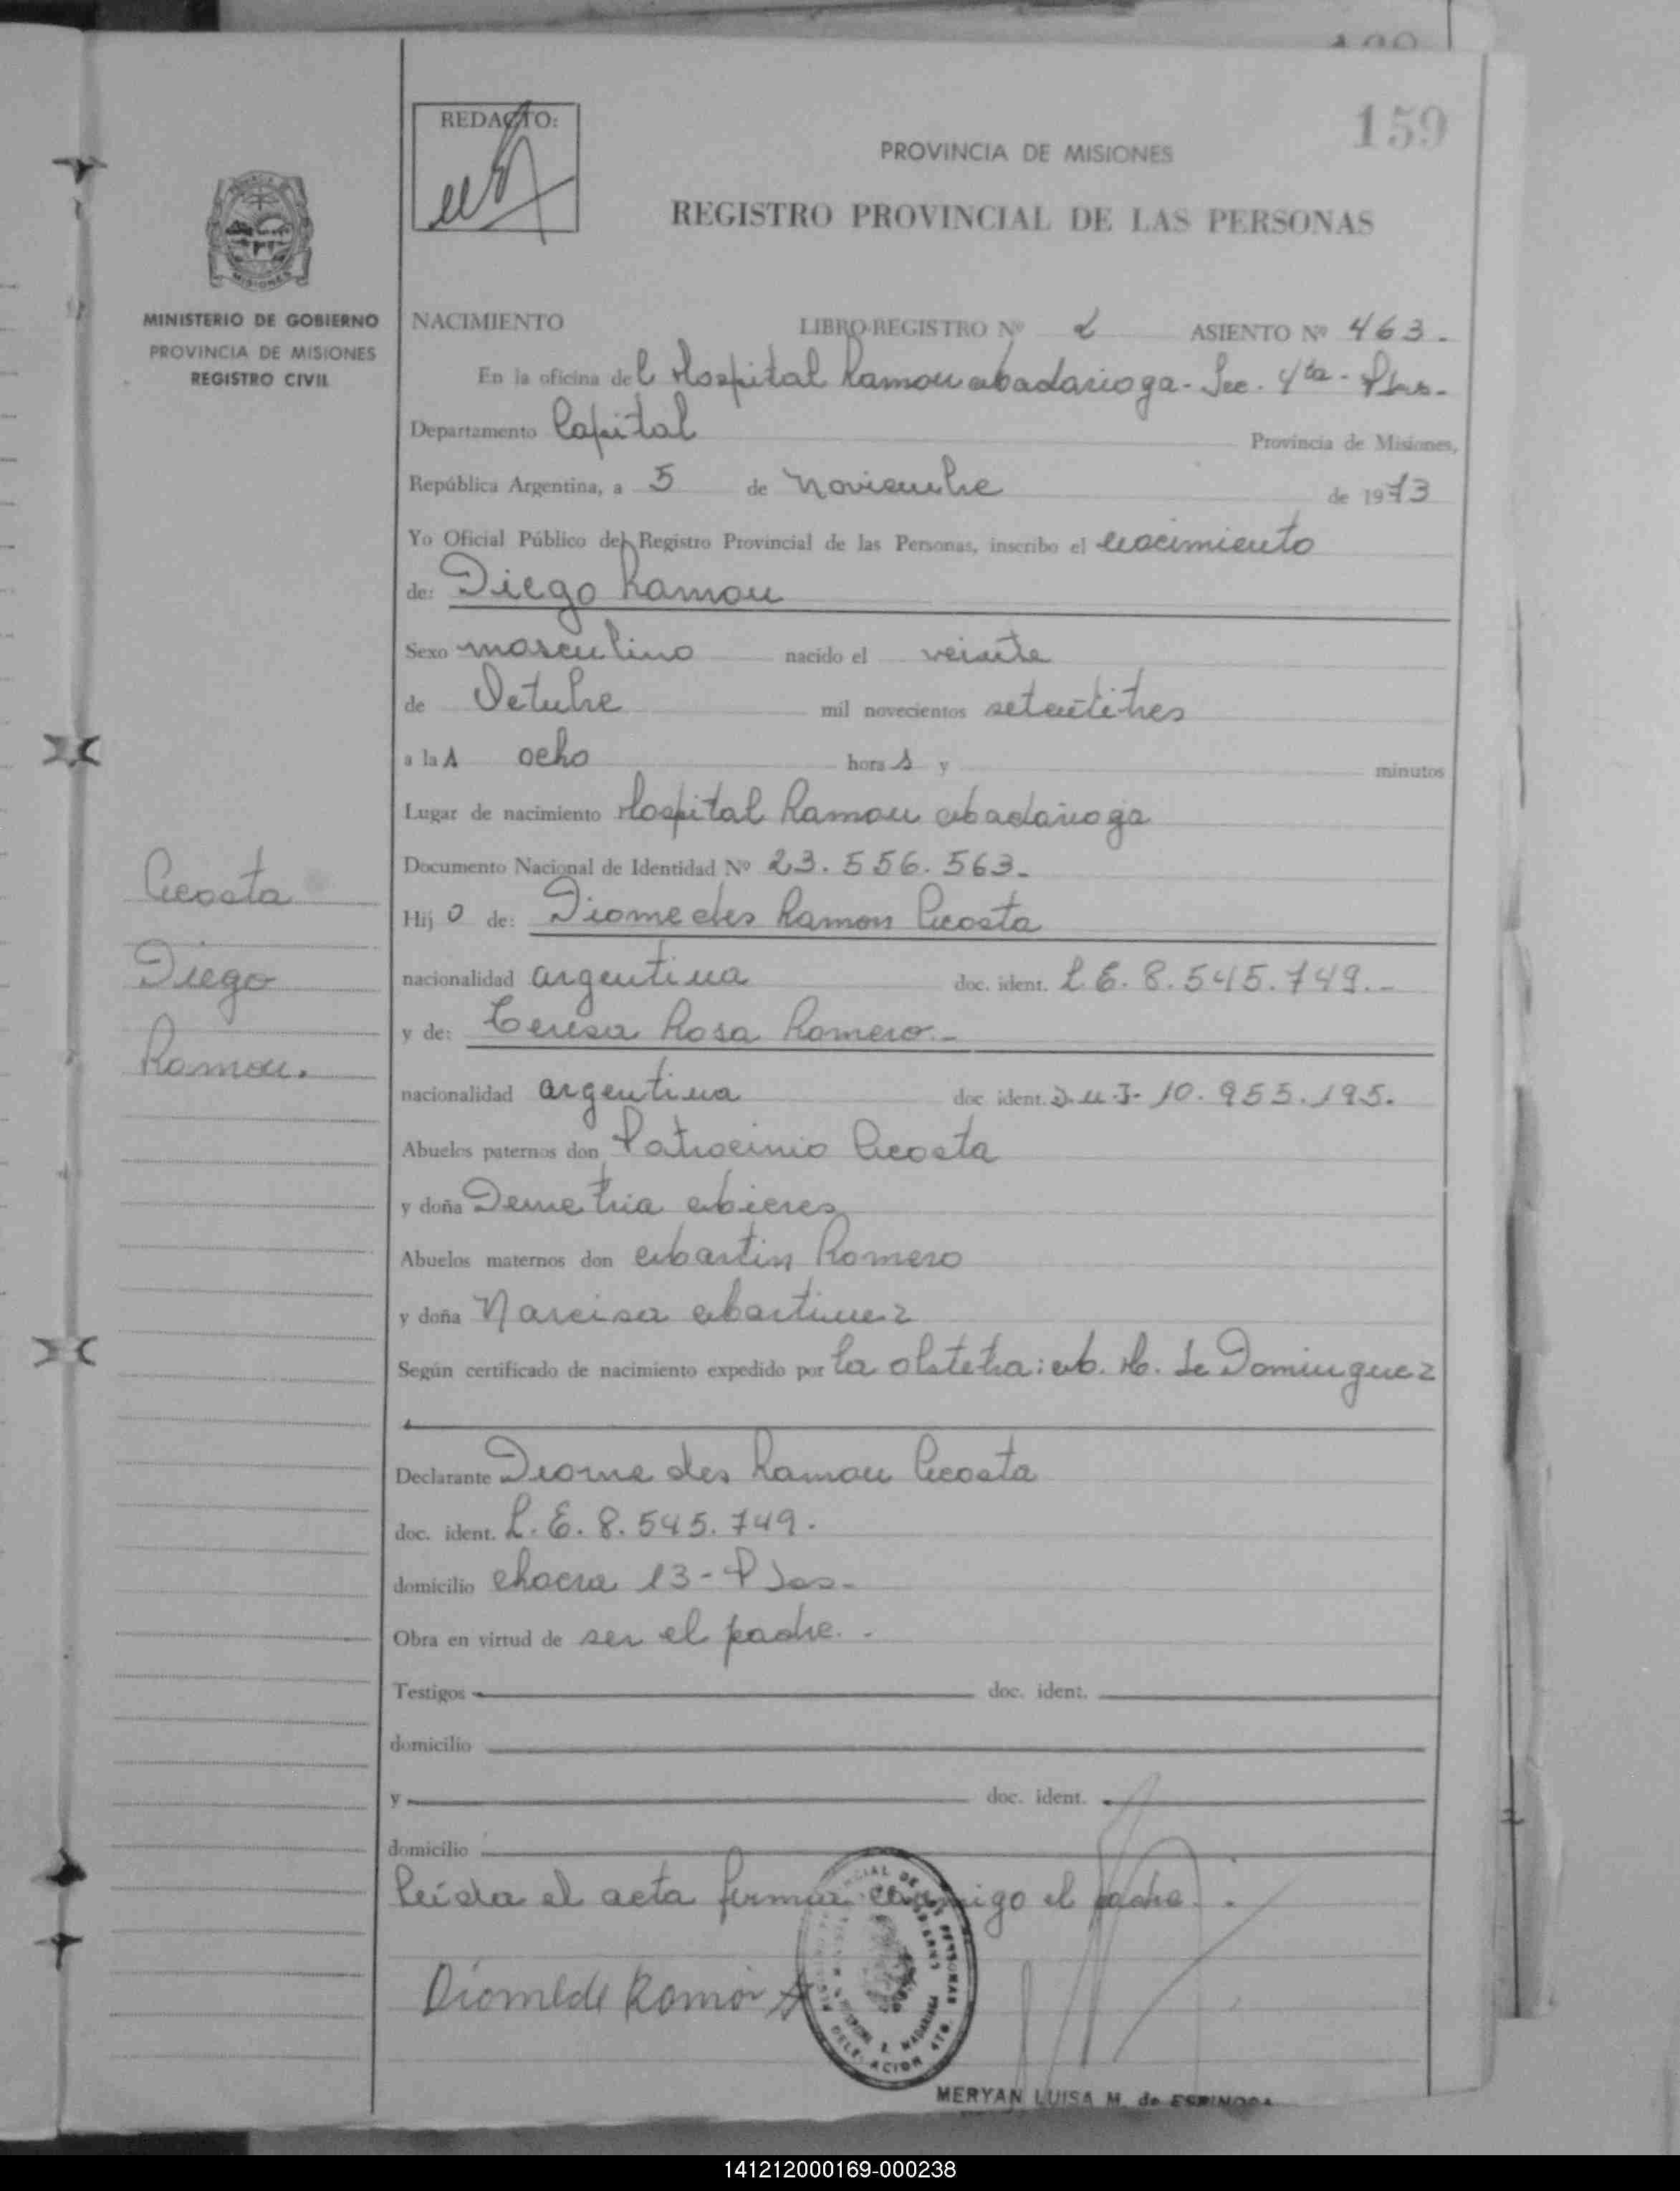 159
REDACTO:
PROVINCIA DE MISIONES
REGISTRO PROVINCIAL DE LAS PERSONAS
MISIONES
MINISTERIO DE GOBIERNO
PROVINCIA DE MISIONES
REGISTRO CIVIL
NACIMIENTO LIBRO-REGISTRO Nº 2 ASIENTO Nº 463.-
En la oficina del Hospital Ramon Madariaga - Sec. 4ta - Pdas.-
Departamento Capital Provincia de Misiones,
República Argentina, a 5 de Noviembre de 1973
Yo Oficial Público del Registro Provincial de las Personas, inscribo el nacimiento
de: Diego Ramon
Sexo masculino nacido el veinte
de Octubre mil novecientos setentitres
a las ocho horas y minutos
Lugar de nacimiento Hospital Ramon Madariaga
Documento Nacional de Identidad Nº 23.556.563.-
Hijo de: Diomedes Ramon Acosta
nacionalidad argentina doc. ident. L.E. 8.545.749.-
y de: Teresa Rosa Romero.-
nacionalidad argentina doc. ident. D.N.I- 10.955.195.
Abuelos paternos don Patrocinio Acosta
y doña Demetria Mieres
Abuelos maternos don Martin Romero
y doña Narcisa Martinez
Según certificado de nacimiento expedido por la obstetra: M. H. de Dominguez
Declarante Diomedes Ramon Acosta
doc. ident. L.E. 8.545.749.
domicilio chacra 13 - Pdas.-
Obra en virtud de ser el padre.-
Testigos doc. ident.
domicilio
y doc. ident.
domicilio
Leida el acta firma conmigo el padre.
Diomede Ramon A
Acosta
Diego
Ramon.
DELEGACION 4TA.
MERYAN LUISA M. de ESPINOSA
141212000169-000238